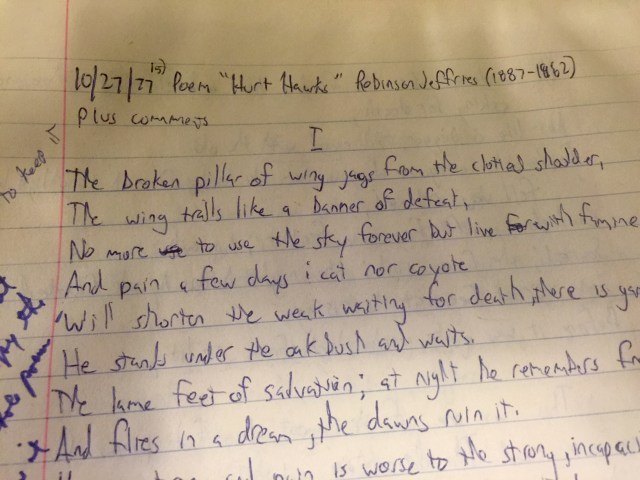 10/27/77 15) Poem "Hurt Hawks" Robinson Jeffries (1887-1862)
Plus comments
I
To keep
The broken pillar of wing jags from the clotted shoulder,
The wing trails like a banner of defeat,
No more use to use the sky forever but live for with famine
And pain a few days i cat nor coyote
Will shorten the week waiting for death, there is
He stands under the oak bush and waits.
The lame feet of salvation; at night he remembers
And flies in a dream, the dawns ruin it.
pain is worse to the strong,